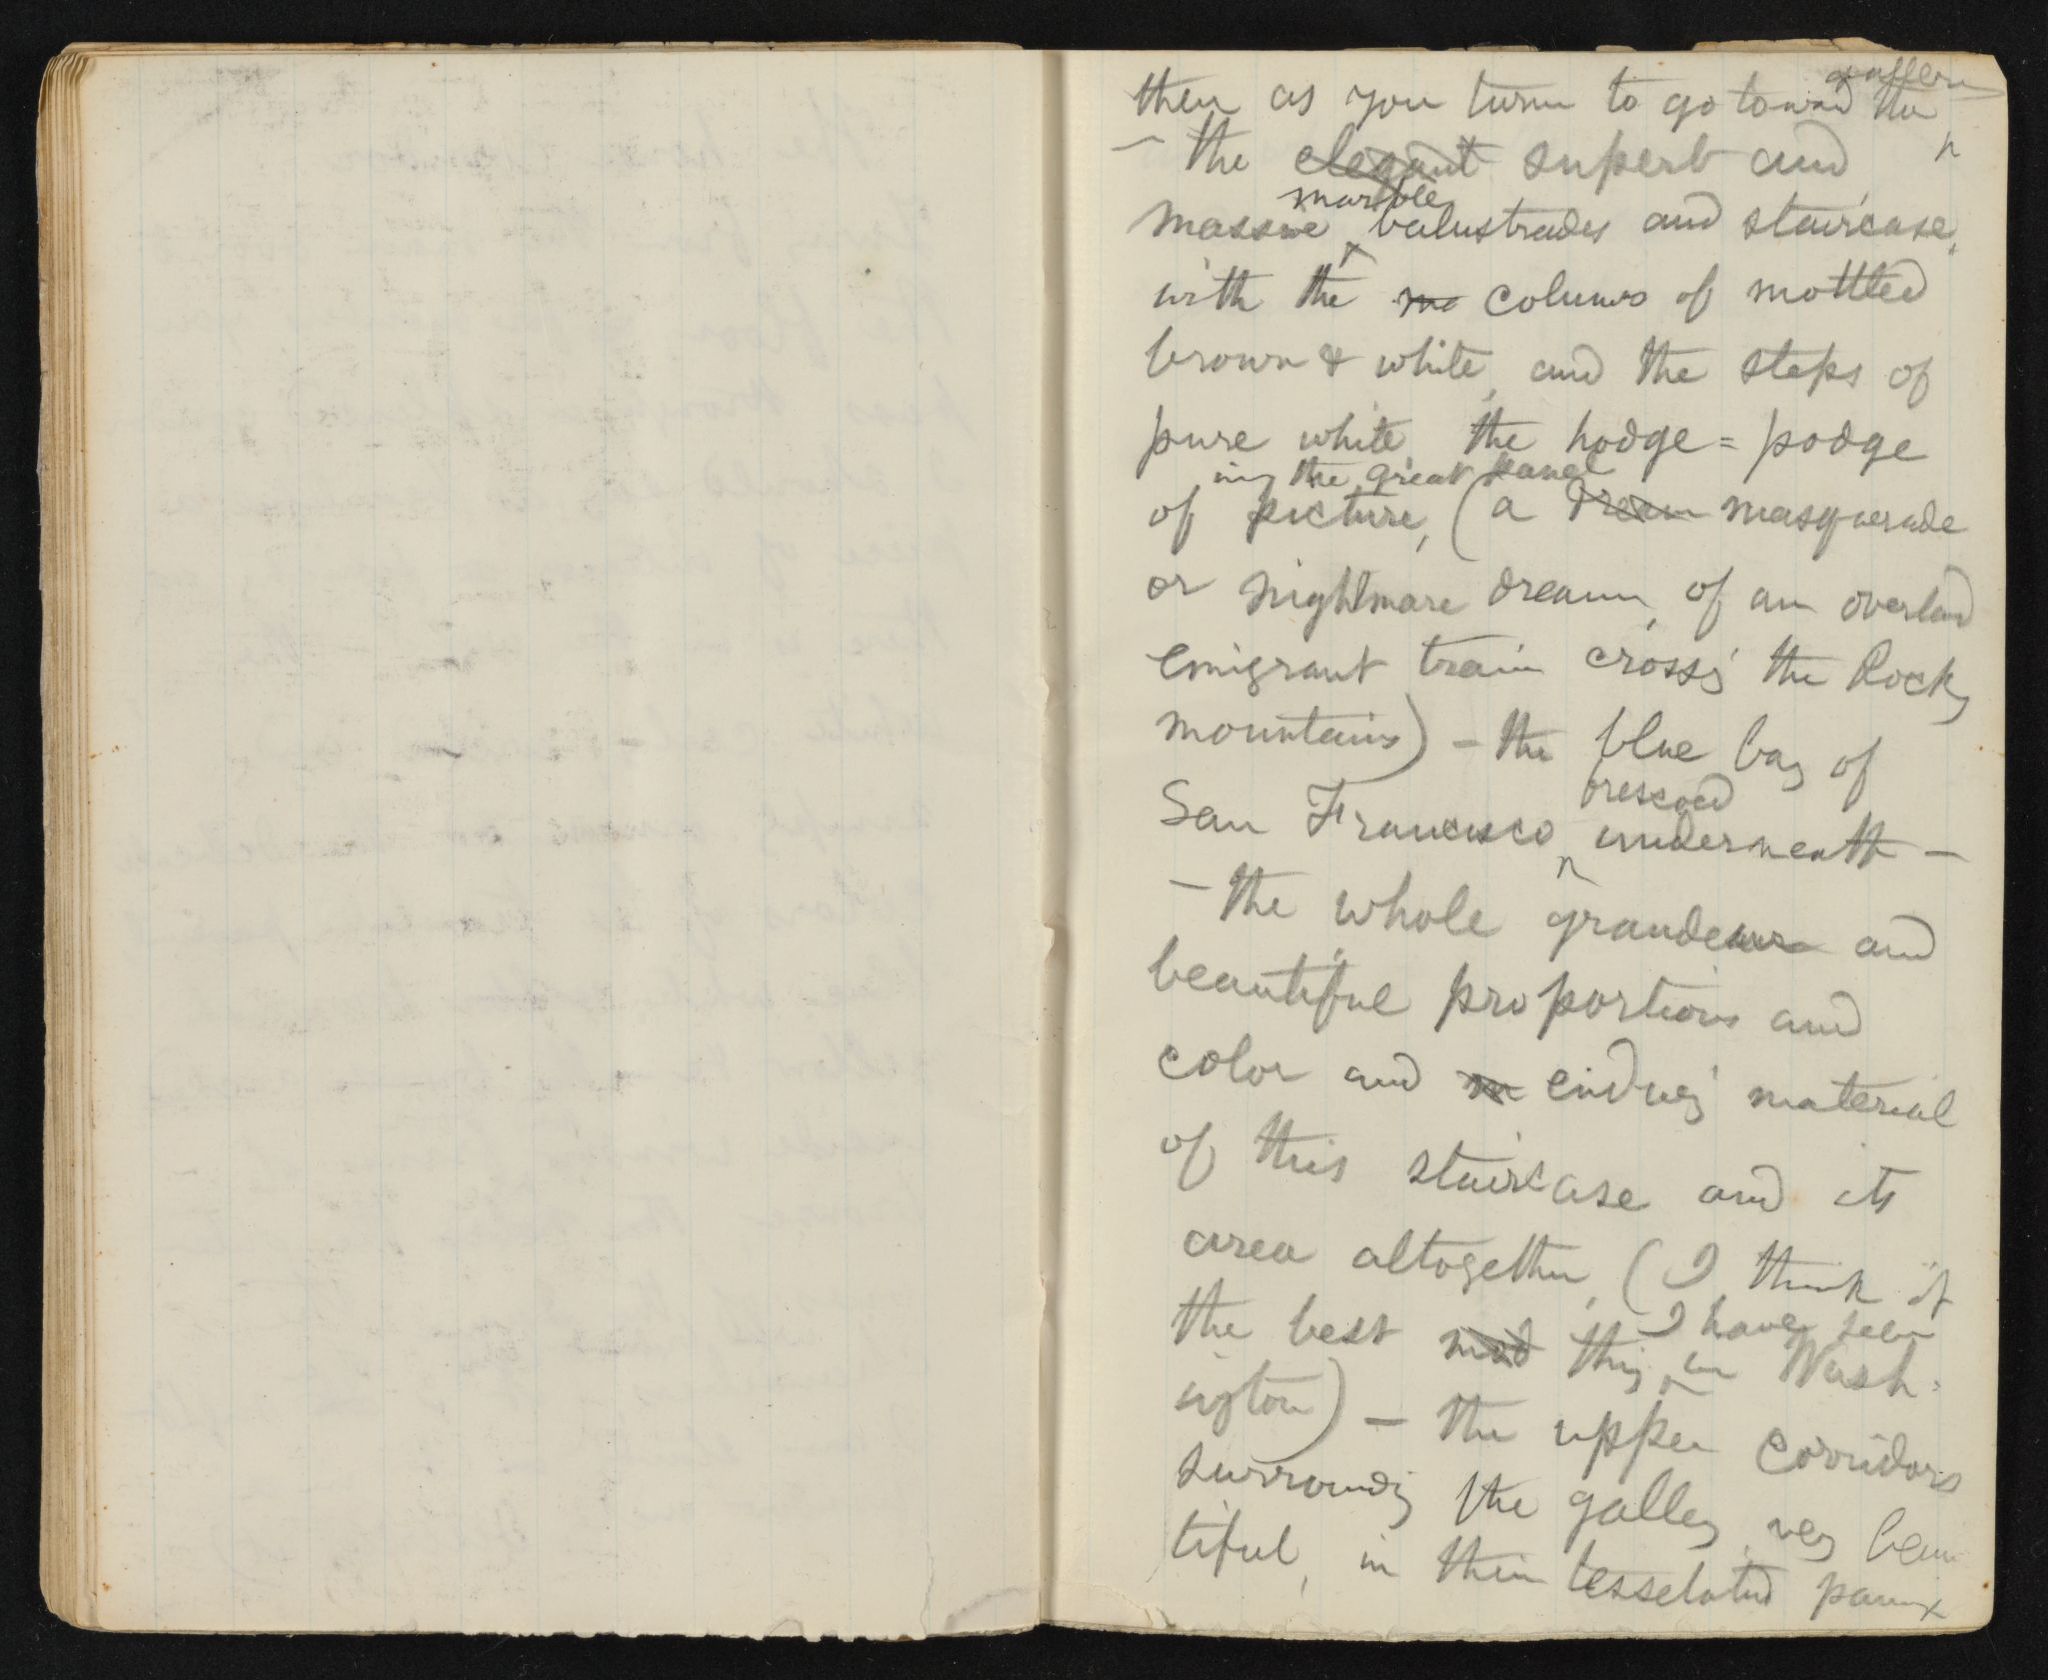 gallery
then as you turn to go toward the
– the elegant superb and
marble
massive balustrades and staircase,
with the ma columns of mottled
brown & white, and the steps of
pure white, the hodge=podge
ing the great panel
of picture, (a dream masquerade
or nightmare dream, of an overland
emigrant train crossg the Rocky
mountains) – the blue bay of
frescoed
San Francisco underneath –
– the whole grandeur and
beautiful proportions and
color and m endurg material
of this staircase and its
area altogether, (I think it
I have seen
the best thing in Wash-
ington) – the upper corridors
surroundg the gallery, very beau
tiful, in their tesselated